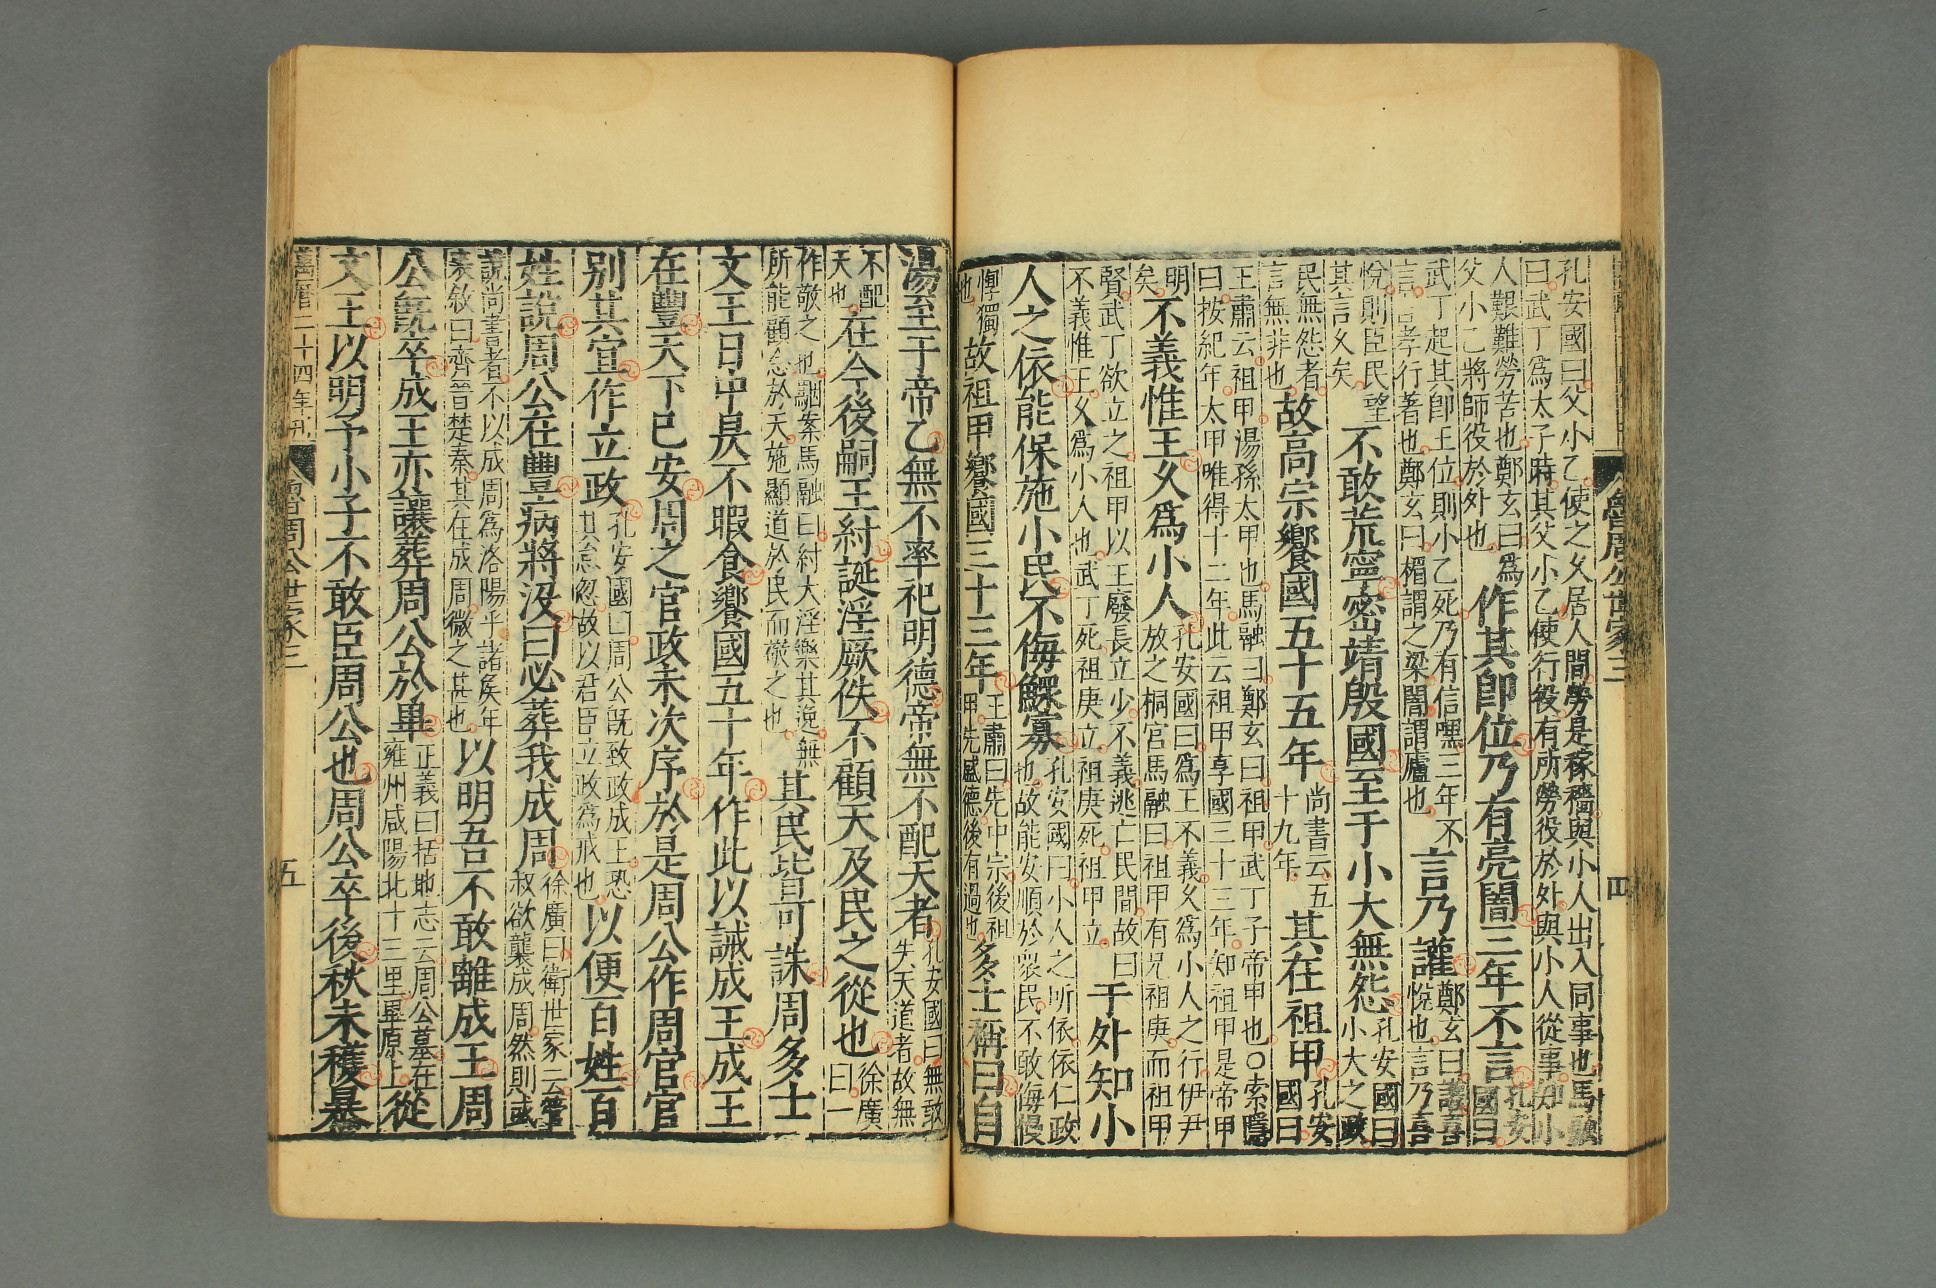 魯周公世家三 四
孔安國曰父小乙使之久居人間勞是稼穡與小人出入同事也馬融曰武丁爲太子時其父小乙使行役有所勞役於外與小人從事知小
人艱難勞苦也鄭玄曰爲父小乙將師役於外也作其卽位乃有亮闇三年不言孔安國曰
武丁起其卽王位則小乙死乃有信嘿三年不言言孝行著也鄭玄曰楣謂之梁闇謂廬也言乃讙鄭玄曰讙喜悅也言乃喜
悅則臣民望其言久矣不敢荒寧密靖殷國至于小大無怨孔安國曰小大之政
民無怨者言無非也故高宗饗國五十五年尚書云五十九年其在祖甲孔安國曰
王肅云祖甲湯孫太甲也馬融曰鄭玄曰祖甲武丁子帝甲也○索隱曰按紀年太甲唯得十二年此云祖甲享國三十三年知祖甲是帝甲
明矣不義惟王久爲小人孔安國曰爲王不義久爲小人之行伊尹放之桐宮馬融曰祖甲有兄祖庚而祖甲
賢武丁欲立之祖甲以王廢長立少不義逃亡民間故曰不義惟王久爲小人也武丁死祖庚立祖庚死祖甲立于外知小
人之依能保施小民不侮鰥寡孔安國曰小人之所依依仁政也故能安順於衆民不敢侮慢
惸獨也故祖甲饗國三十三年王肅曰先中宗後祖甲先盛德後有過也多士稱曰自
湯至于帝乙無不率祀明德帝無不配天者孔安國曰無敢失天道者故無
不配天也在今後嗣王紂誕淫厥佚不顧天及民之從也徐廣曰一
作敬之也駰案馬融曰紂大淫樂其逸無所能顧念於天施顯道於民而敬之也其民皆可誅周多士
文王日中昃不暇食饗國五十年作此以誡成王成王
在豐天下已安周之官政未次序於是周公作周官官
別其宜作立政孔安國曰周公旣致政成王恐其怠忽故以君臣立政爲戒也以便百姓百
姓說周公在豐病將沒曰必葬我成周徐廣曰衛世家云管叔欲襲成周然則或
說尚書者不以成周爲洛陽乎諸矦年表敘曰齊晉楚秦其在成周微之甚也以明吾不敢離成王周
公旣卒成王亦讓葬周公於畢正義曰括地志云周公墓在雍州咸陽北十三里畢原上從
文王以明予小子不敢臣周公也周公卒後秋未穫暴
萬曆二十四年刊 魯周公世家三 五